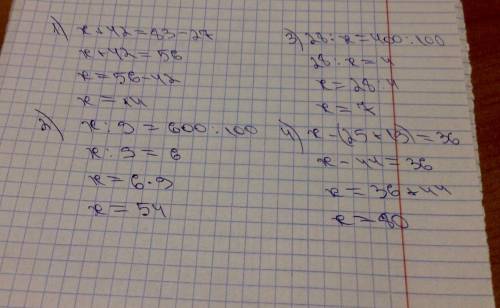 1) x + 42 = 83 - 27
x + 42 = 56
x = 56 - 42
x = 14
3) x : 9 = 600 : 100
x : 9 = 6
x = 6 · 9
x = 54
3) 28 : x = 400 : 100
28 : x = 4
x = 28 : 4
x = 7
4) x - (25 + 19) = 36
x - 44 = 36
x = 36 + 44
x = 80